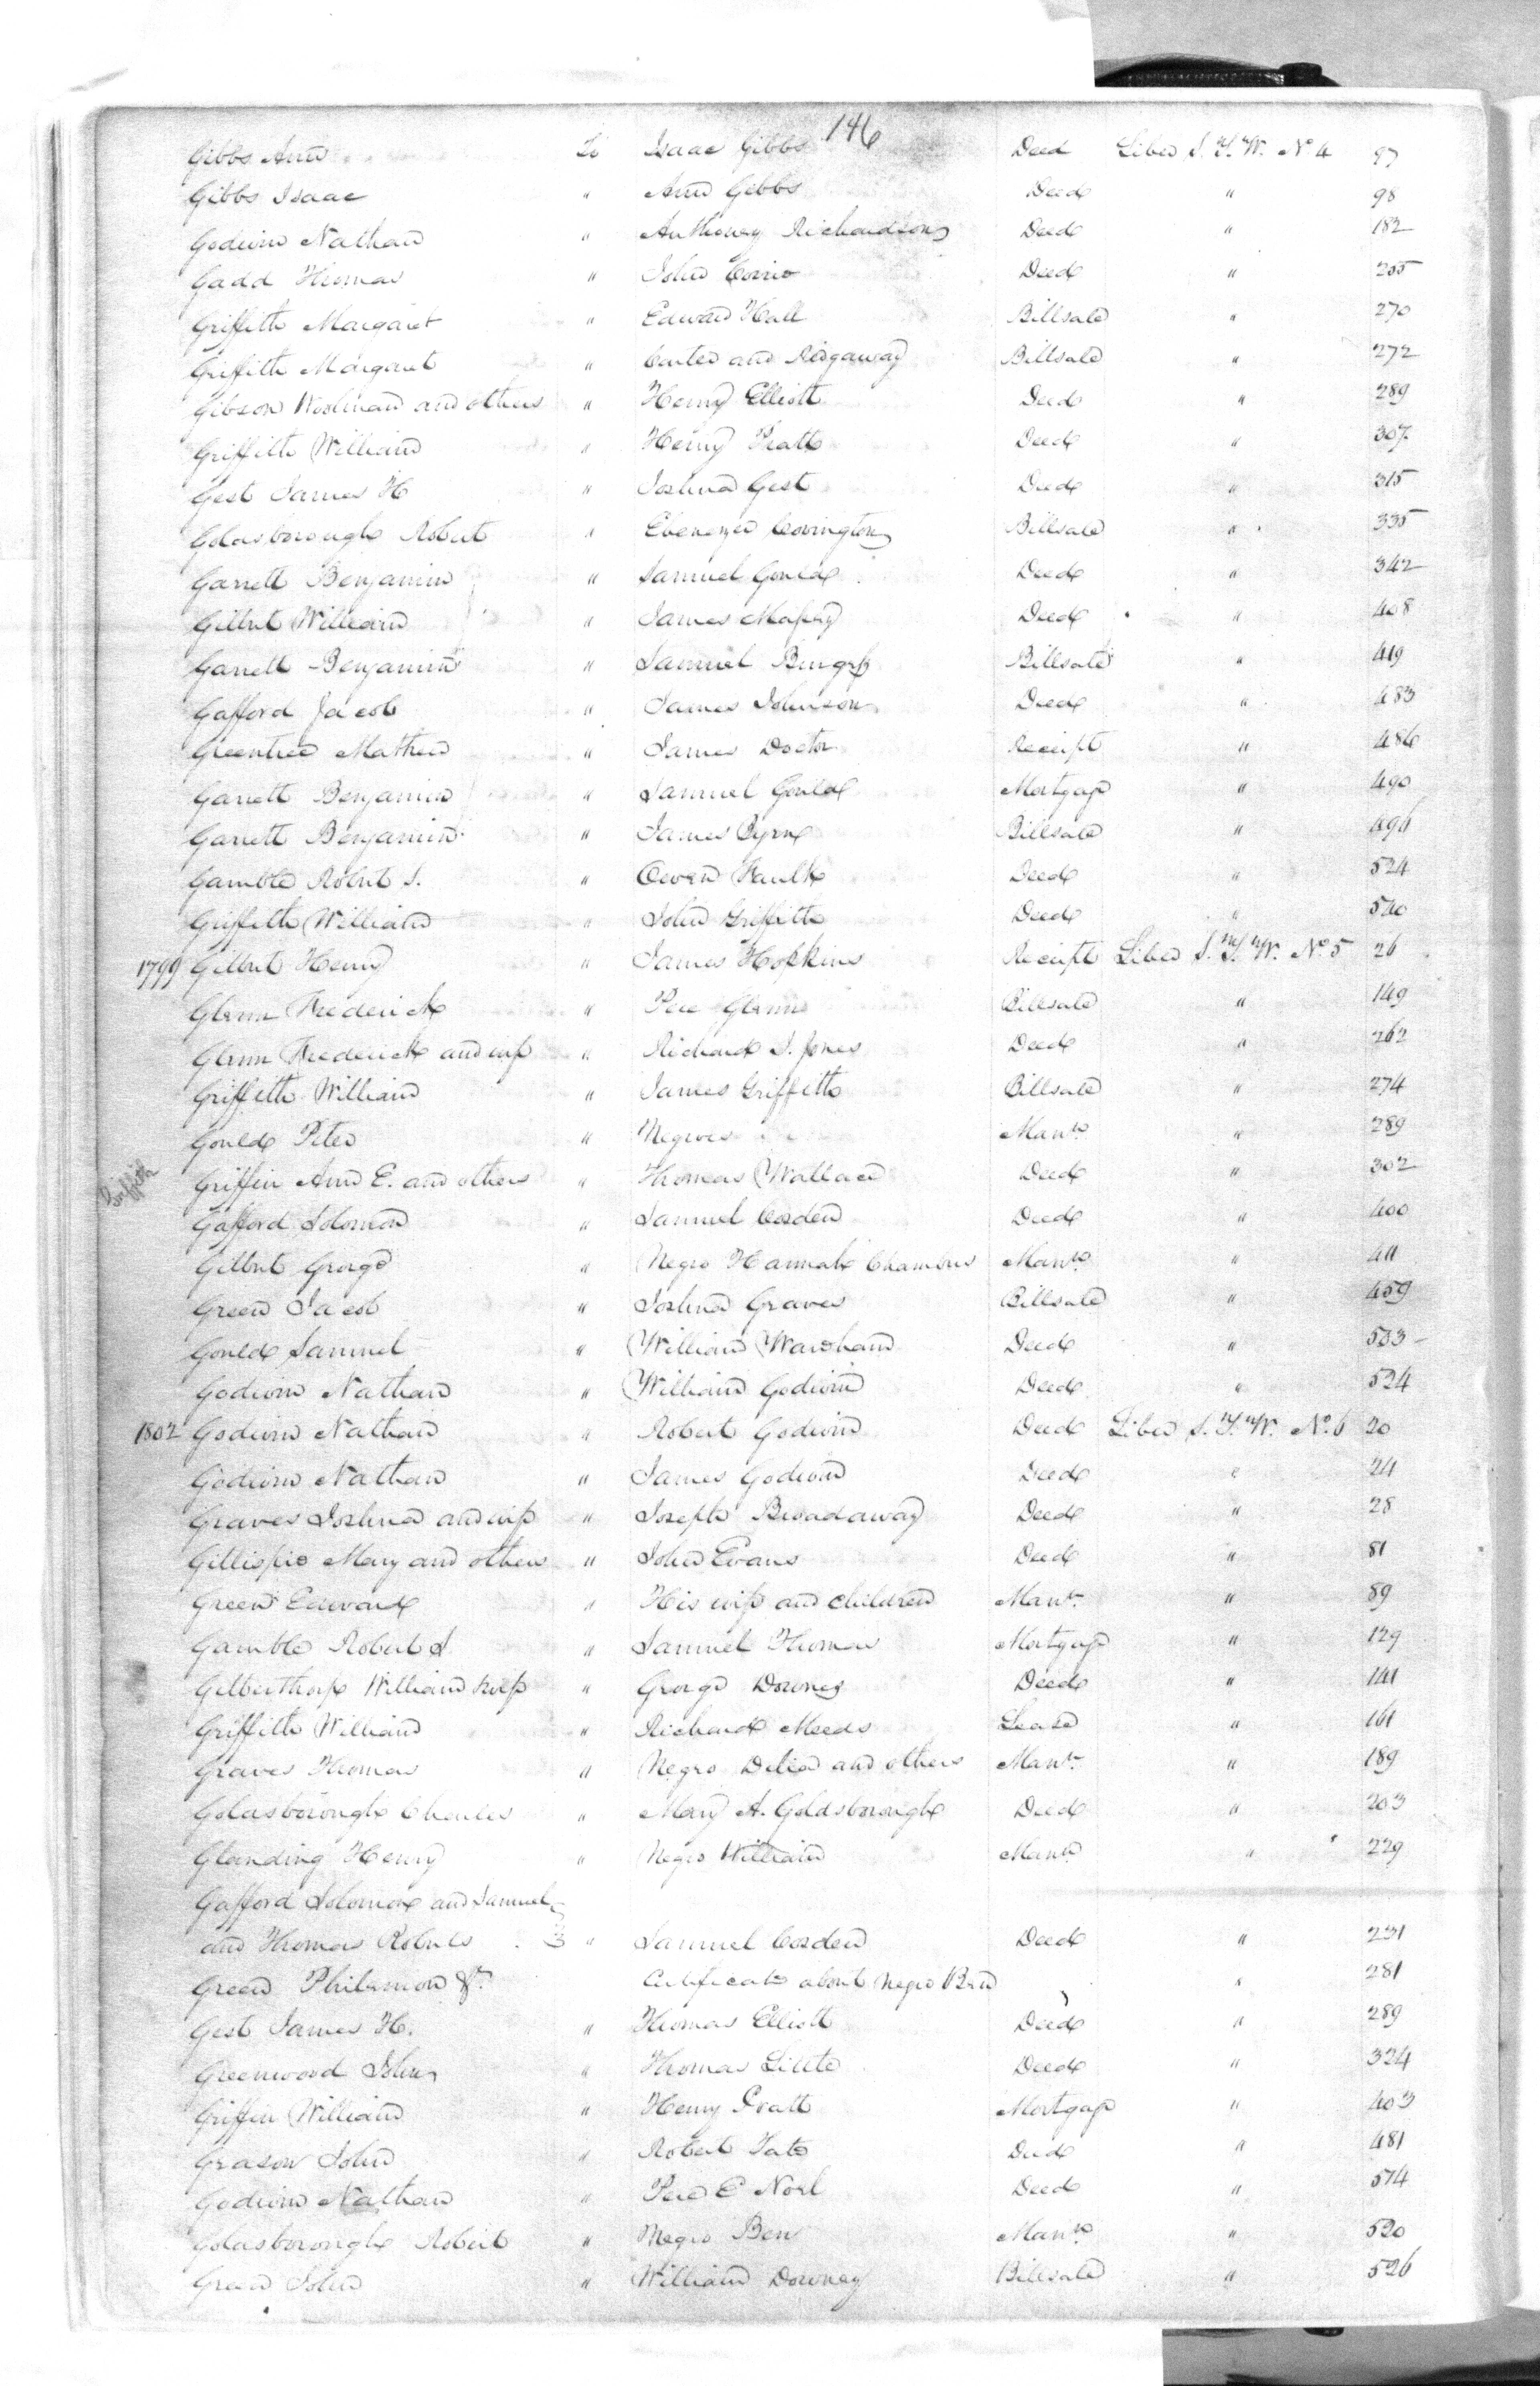 146
Gibbs Ann To Isaac Gibbs Deed Liber S. T. W. No. 4 97
Gibbs Isaac " Ann Gibbs Deed " 98
Godwin Nathan " Anthoney Richardson Deed " 182
Gadd Thomas " John Deed " 205
Griffith Margaret " Edward Hall Billsale " 270
Griffith Margaret " Carter and Ridgaway Billsale " 272
Gibson Woolman and others " Henry Elliott Deed " 289
Griffith William " Henry Pratt Deed " 307
Gest James H " Joshua Gest Deed " 315
Goldsborough Robert " Ebenezer Covington Billsale " 335
Garrett Benjamin " Samuel Gould Deed " 342
Gilbert William " James Massey Deed " 408
Garrett Benjamin " Samuel Burgess Billsale " 419
Gafford Jacob " James Johnson Deed " 483
Greentree Mathew " James Doctor Receipt " 486
Garrett Benjamin " Samuel Gould Mortgage " 490
Garrett Benjamin " James Byrn Billsale " 496
Gamble Robert S. " Owen Faulk Deed " 524
Griffith William " John Griffith Deed " 540
1799 Gilbert Henry " James Hopkins Receipt Liber S. T. W. No. 5 26
Glenn Frederick " Pere Glenn Billsale " 149
Glenn Frederick and wife " Richard S. Jones Deed " 262
Griffith William " James Griffith Billsale " 274
Gould Peter " Negroes Mann. " 289
Griffith Griffin Ann E. and others " Thomas Wallace Deed " 302
Gafford Solomon " Samuel Cosden Deed " 400
Gilbert George " Negro Hannah Chambers Mann. " 411
Green Jacob " Joshua Graves Billsale " 459
Gould Samuel " William Warsham Deed " 533
Godwin Nathan " William Godwin Deed " 534
1802 Godwin Nathan " Robert Godwin Deed Liber S. T. W. No. 6 20
Godwin Nathan " James Godwin Deed " 24
Graves Joshua and wife " Joseph Broadaway Deed " 28
Gillispie Mary and others " John Evans Deed " 81
Green Edward " His wife and children Mann. " 89
Gamble Robert S. " Samuel Thomas Mortgage " 129
Gilberthorp William & wife " George Downes Deed " 141
Griffith William " Richard Meeds Lease " 161
Graves Thomas " Negro Delia and others Mann. " 189
Goldsborough Charles " Mary A. Goldsborough Deed " 203
Glanding Henry " Negro William Mann. " 229
Gafford Solomon and Samuel
and Thomas Roberts 3 " Samuel Cosden Deed " 231
Green Philemon Certificate about Negro Ben " 281
Gest James H. " Thomas Elliott Deed " 289
Greenwood John " Thomas Little Deed " 324
Griffin William " Henry Pratt Mortgage " 403
Grason John " Robert Tate Deed " 481
Godwin Nathan " Pere E Noel Deed " 514
Goldsborough Robert " Negro Ben Mann. " 520
Green John " William Downey Billsale " 526